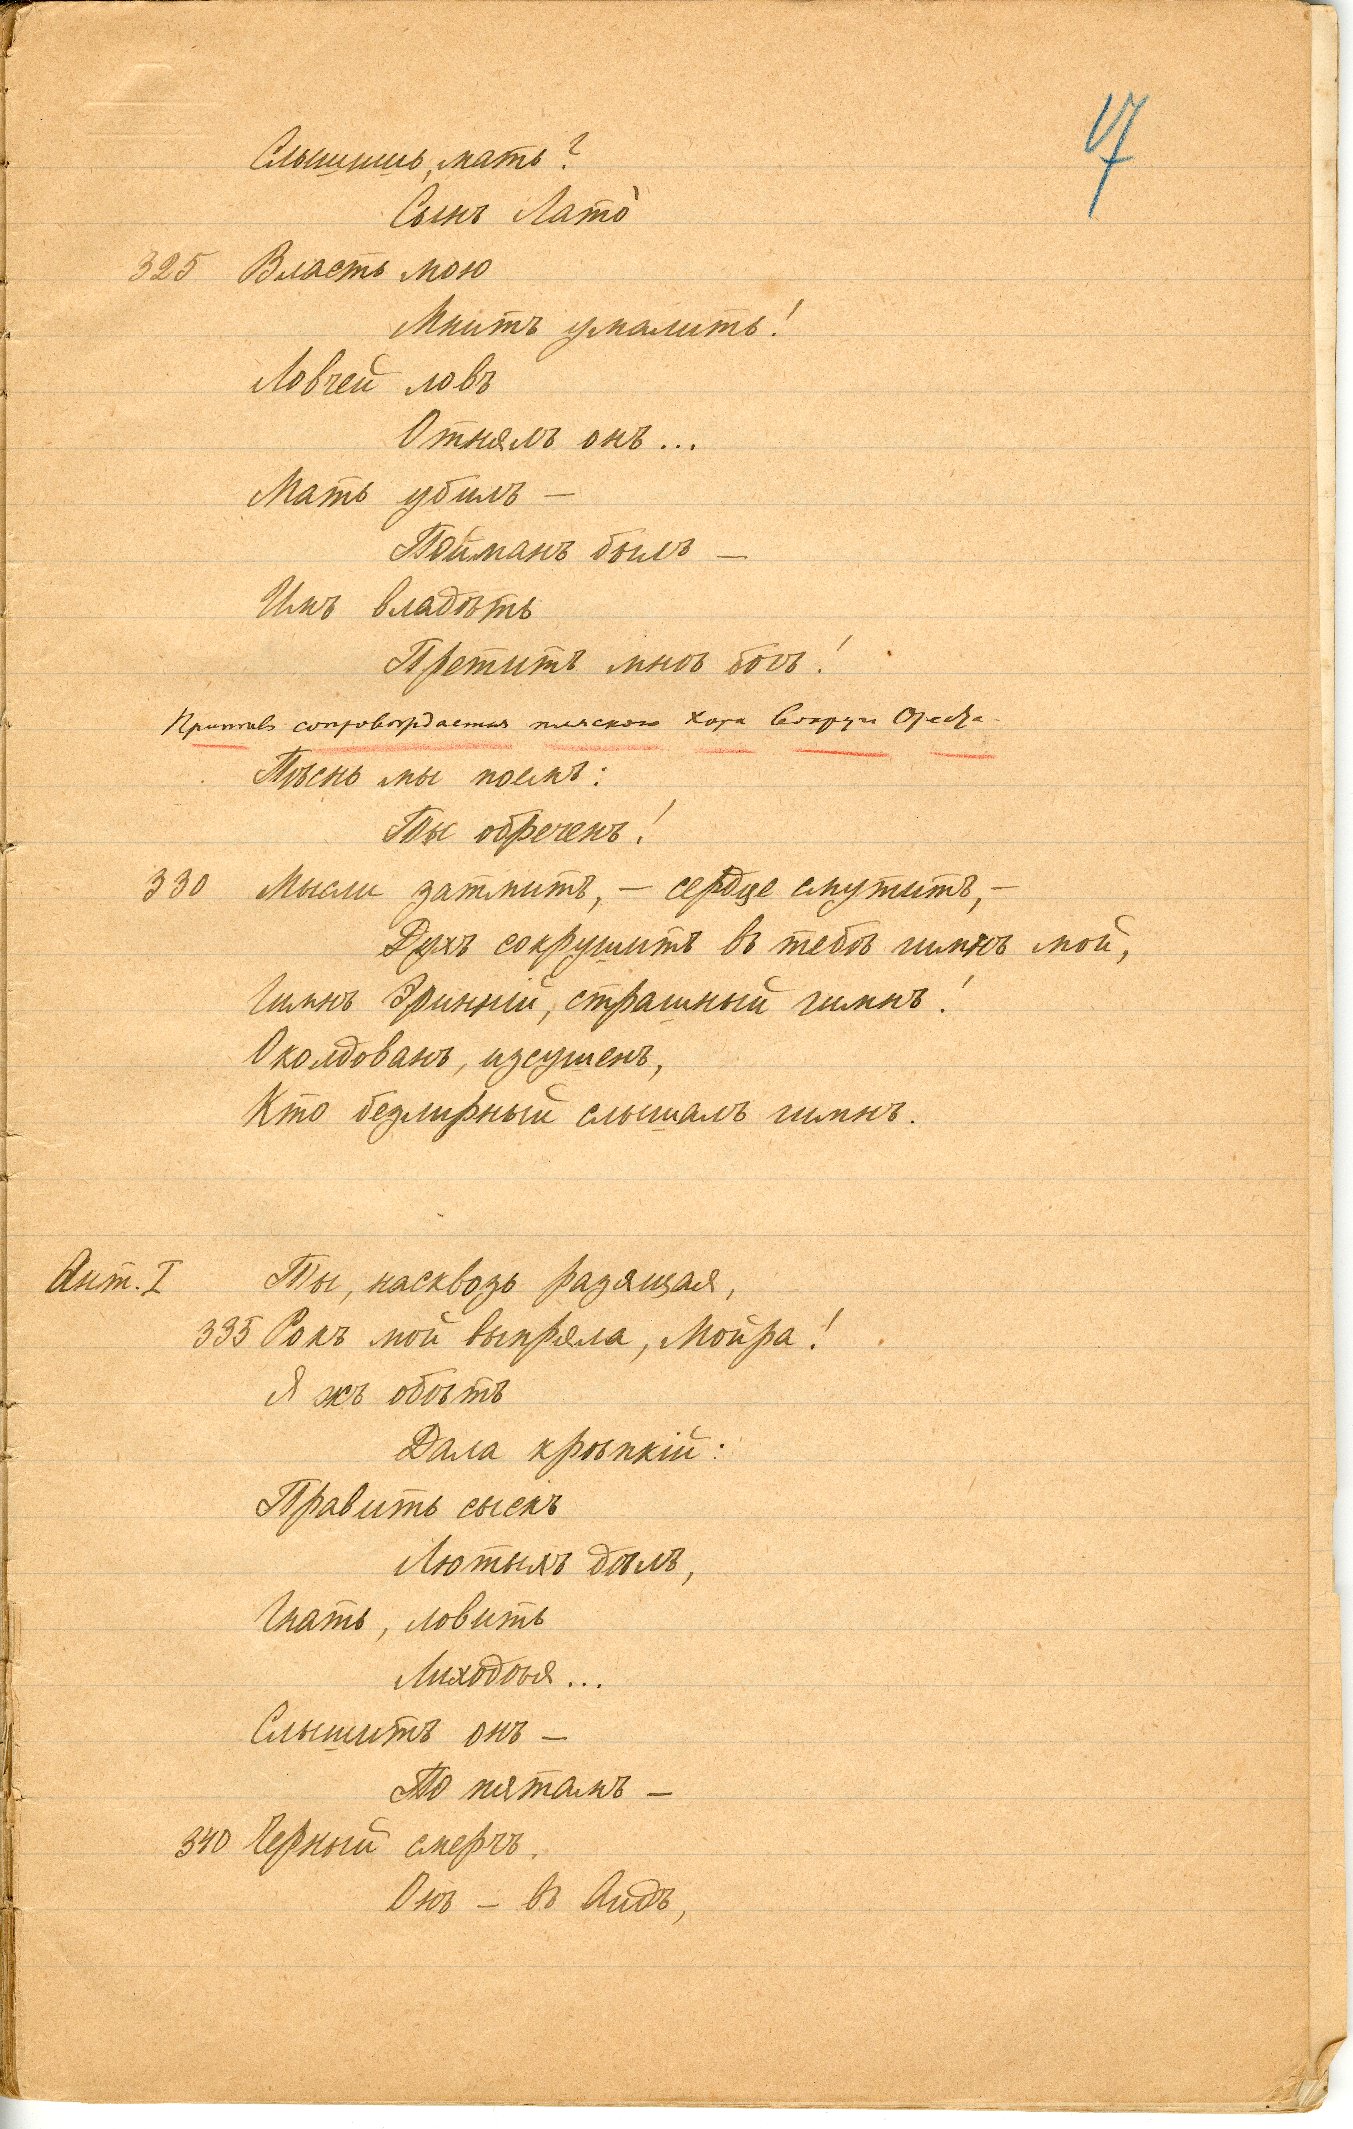 17
Слышишь, мать?
Сынъ Лато̀
325 Власть мою
Мнитъ умалить!
Ловчей ловъ
Отнялъ онъ...
Мать убилъ —
Пойманъ былъ —
Имъ владѣть
Претитъ мнѣ богъ!
Припѣвъ сопровождается пляскою Хора вокругъ Ореста.
Пѣснь мы поемъ:
Ты обреченъ!
330 Мысли затмитъ, — сердце смутитъ, —
Духъ сокрушитъ въ тебѣ гимнъ мой,
Гимнъ Эринній, страшный гимнъ!
Околдованъ, изсушенъ,
Кто безлирный слышалъ гимнъ.
Ант. I Ты, насквозь разящая,
335 Рокъ мой выпряла, Мойра!
Я жъ обѣтъ
Дала крѣпкій:
Править сыскъ
Лютыхъ дѣлъ,
Гнать, ловить
Лиходѣя...
Слышитъ онъ —
По пятамъ —
340 Черный смерчъ.
Онъ — въ Аидъ,